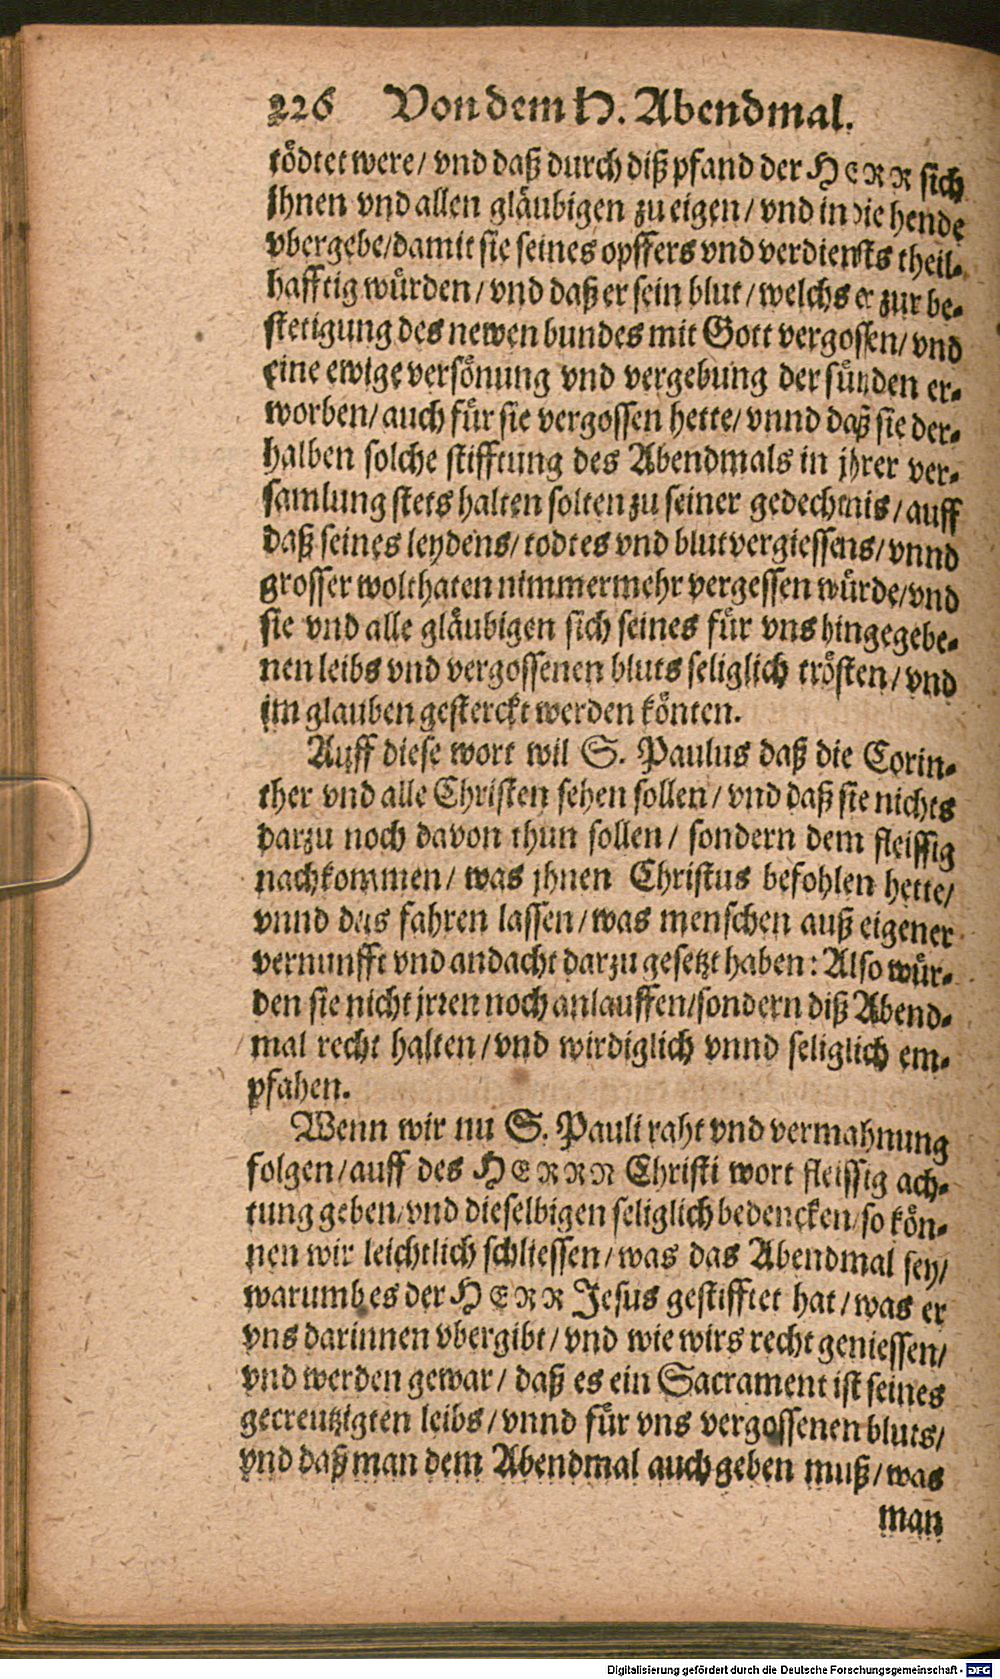 226 Von dem H. Abendmal.
tödtet were/ vnd daß durch diß pfand der HERR sich
jhnen vnd allen gläubigen zu eigen/ vnd in die hende
vbergebe/damit sie seines opffers vnd verdiensts theil-
hafftig würden/ vnd daß er sein blut/ welchs er zur be-
stetigung des newen bundes mit Gott vergossen/ vnd
eine ewige versönung vnd vergebung der sünden er-
worben/ auch für sie vergossen hette/ vnnd daß sie der-
halben solche stifftung des Abendmals in jhrer ver-
samlung stets halten solten zu seiner gedechtnis/ auff
daß seines leydens/ todtes vnd blutvergiessens/ vnnd
grosser wolthaten nimmermehr vergessen würde/ vnd
sie vnd alle gläubigen sich seines für vns hingegebe-
nen leibs vnd vergossenen bluts seliglich trösten/ vnd
im glauben gesterckt werden könten.
Auff diese wort wil S. Paulus daß die Corin-
ther vnd alle Christen sehen sollen/ vnd daß sie nichts
darzu noch davon thun sollen/ sondern dem fleissig
nachkommen/ was jhnen Christus befohlen hette/
vnnd das fahren lassen/ was menschen auß eigener
vernunfft vnd andacht darzu gesetzt haben: Also wür-
den sie nicht jrren noch anlauffen/sondern diß Abend-
mal recht halten/ vnd wirdiglich vnnd seliglich em-
pfahen.
Wenn wir nu S. Pauli raht vnd vermahnung
folgen/ auff des HERRN Christi wort fleissig ach-
tung geben/ vnd dieselbigen seliglich bedencken/ so kön-
nen wir leichtlich schliessen/ was das Abendmal sey/
warumb es der HERR Jesus gestifftet hat/ was er
vns darinnen vbergibt/ vnd wie wirs recht geniessen/
vnd werden gewar/ daß es ein Sacrament ist seines
gecreutzigten leibs/ vnnd für vns vergossenen bluts/
vnd daß man dem Abendmal auch geben muß/ was
man
Digitalisierung gefördert durch die Deutsche Forschungsgemeinschaft - DFG